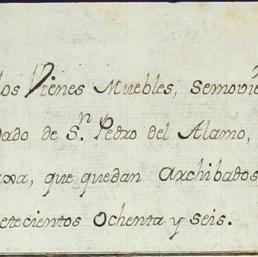 los Vienes Muebles, Semovie
dado de S.n Pedro del Alamo,
que quedan Archibados
etecientos Ochenta y Seis.